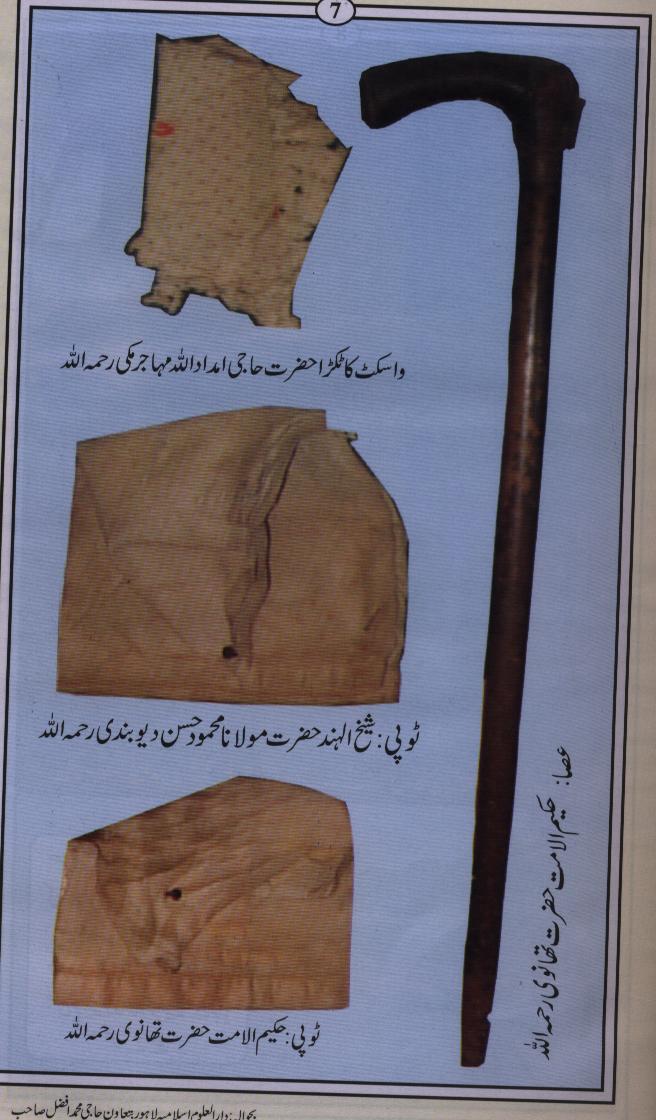 7
واسکٹ کا ٹکڑا حضرت حاجی امداد اللہ مہاجر مکی رحمہ اللہ
ٹوپی: شیخ الہند حضرت مولانا محمود حسن دیوبندی رحمہ اللہ
عصا: حکیم الامت حضرت تھانوی رحمہ اللہ
ٹوپی: حکیم الامت حضرت تھانوی رحمہ اللہ
بحوالہ: دارالعلوم اسلامیہ لاہور بتعاون حاجی محمد افضل صاحب